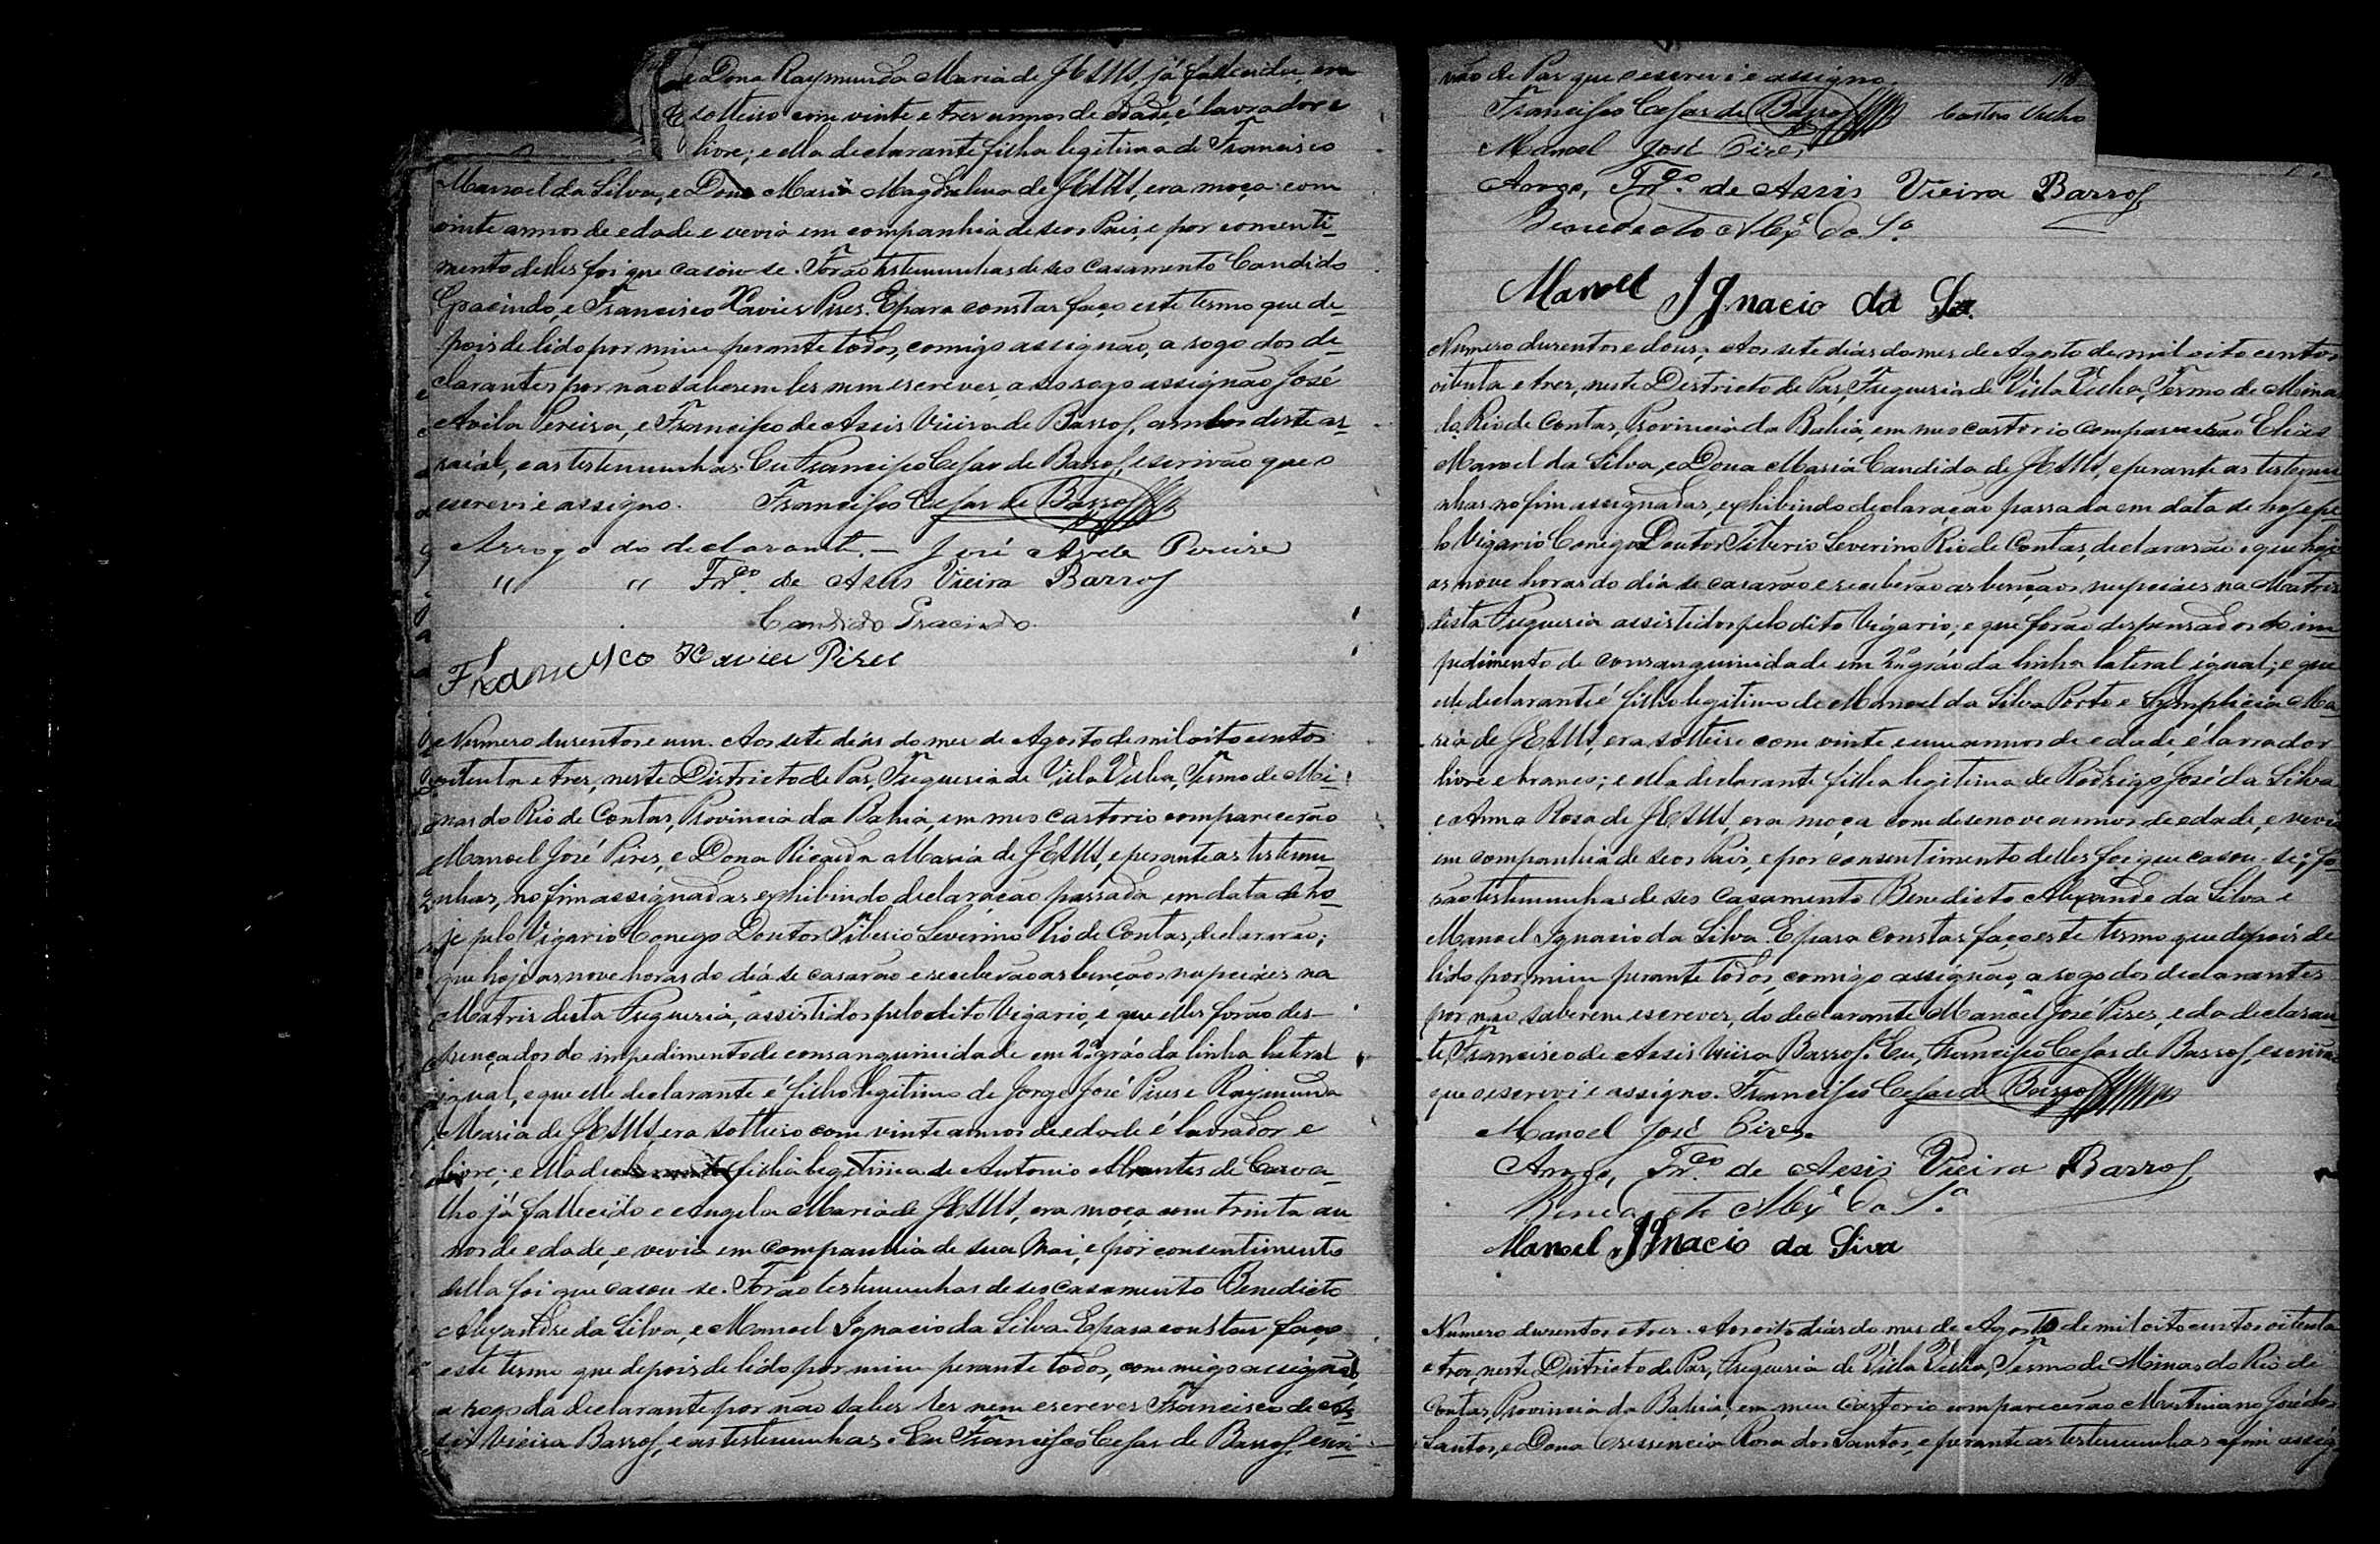 de Dona Raymunda Maria de JESUS, já fallecida, era
solteiro com vinte e tres annos de edade, é lavrador e
livre; e ella declarante filha legitima de Francisco
Manoel da Silva, e Dona Maria Magdalena de JESUS, era moça com
vinte annos de edade e vevia em companhia de seos Pais, e por consenti-
mento delles foi que casou-se. Forão testemunhas de seo casamento Candido
Gracindo, e Francisco Xavier Pires. E para constar faço este termo que de-
pois de lido por mim perante todos, comigo assignão, a rogo dos de-
clarantes por não saberem ler nem escrever, a seo rogo assignão José
Avila Pereira, e Francisco de Assis Vieira de Barros, ambos deste ar-
raial, e as testemunhas. Eu Francisco Cesar de Barros, escrivão que o
escrevi e assigno. Francisco Cesar de Barros
Arrogo do declarante. — José Avila Pereira
" " Frco. de Assis Vieira Barros
Candido Gracindo
Francisco Xavier Pires
Numero dusentos e um. Aos sete dias do mes de Agosto de mil oito centos
oitenta e tres, neste Districto de Pas, Freguesia de Villa Velha, Termo de Mi-
nas do Rio de Contas, Provincia da Bahia, em meo cartorio comparecerão
Manoel José Pires, e Dona Ricarda Maria de JESUS, e perante as testemu-
nhas, no fim assignadas exhibindo declaração passada em data de ho-
je pelo Vigario Conego Doutor Tiberio Severino Rio de Contas, declararão;
que hoje as nove horas do dia se casarão e receberão as bençãos nupciaes na
Matris desta Freguesia, assistidos pelo dito Vigario, e que elles forão des-
pençados do impedimento de consanguinidade em 2º gráo da linha lateral
igual, e que elle declarante é filho legitimo de Jorge José Pires e Raymunda
Maria de JESUS, era solteiro com vinte annos de edade é lavrador e
livre; e ella declarante filha legitima de Antonio Abrantes de Carva-
lho já fallecido e Angela Maria de JESUS, era moça com trinta an
nos de edade, e vevia em companhia de sua Mai, e por consentimento
della foi que casou-se. Forão testemunhas de seo casamento Benedicto
Alexandre da Silva, e Manoel Ignacio da Silva. E para constar faço
este termo que depois de lido por mim perante todos, commigo assignão,
a rogo da declarante por não saber ler nem escrever Francisco de As-
sis Vieira Barros, e as testemunhas. Eu Francisco Cesar de Barros, escri-
vão de Pas que o escrevi e assigno.
Francisco Cesar de Barros
Manoel José Pires,
Arogo, Frco. de Assis Vieira Barros
Benedicto Alexe. da Sa.
Manoel Ignacio da Sa.
Numero dusentos e dous; Aos sete dias do mes de Agosto de mil oito centos
oitenta e tres, neste Districto de Pas, Freguesia de Villa Velha, Termo de Minas
do Rio de Contas, Provincia da Bahia, em meo cartorio comparecerão Elias
Manoel da Silva, e Dona Maria Candida de JESUS, e perante as testemu
nhas, no fim assignadas, exhibindo declaração passada em data de hoje pe-
lo Vigario Conego Doutor Tiberio Severino Rio de Contas, declararão; que hoje
as nove horas do dia se casarão e receberão as bençãos nupciaes na Matris
desta Freguesia assistidos pelo dito Vigario; e que forão dispensados do im-
pedimento de consanguinidade em 2º gráo da linha lateral igual; e que
elle declarante é filho legitimo de Manoel da Silva Porto e Symplicia Ma-
ria de JESUS, era solteiro com vinte e um annos de edade, é lavrador
livre e branco; e ella declarante filha legitima de Rodrigo José da Silva
e Anna Rosa de JESUS, era moça com desenove annos de edade, e vevia
em companhia de seos Pais, e por consentimento delles foi que casou-se; fo-
rão testemunhas de seo casamento Benedicto Alexandre da Silva e
Manoel Ignacio da Silva. E para constar faço este termo que depois de
lido por mim perante todos, comigo assignão, a rogo dos declarantes
por não saberem escrever, do declarante Manoel José Pires, e da declaran-
te, Francisco de Assis Vieira Barros. Eu, Francisco Cesar de Barros, escrivão
que o escrevi e assigno. Francisco Cesar de Barros
Manoel José Pires.
Arogo, Frco. de Assis Vieira Barros
Benedicto Alexe. da Sa.
Manoel Ignacio da Siva
Numero dusentos e tres. Aos oito dias do mes de Agosto de mil oito centos oitenta
e tres, neste Districto de Pas, Freguesia de Villa Velha, Termo de Minas do Rio de
Contas, Provincia da Bahia, em meu Cartorio comparecerão Martiniano José dos
Santos, e Dona Cressencia Rosa dos Santos, e perante as testemunhas a fim assig-